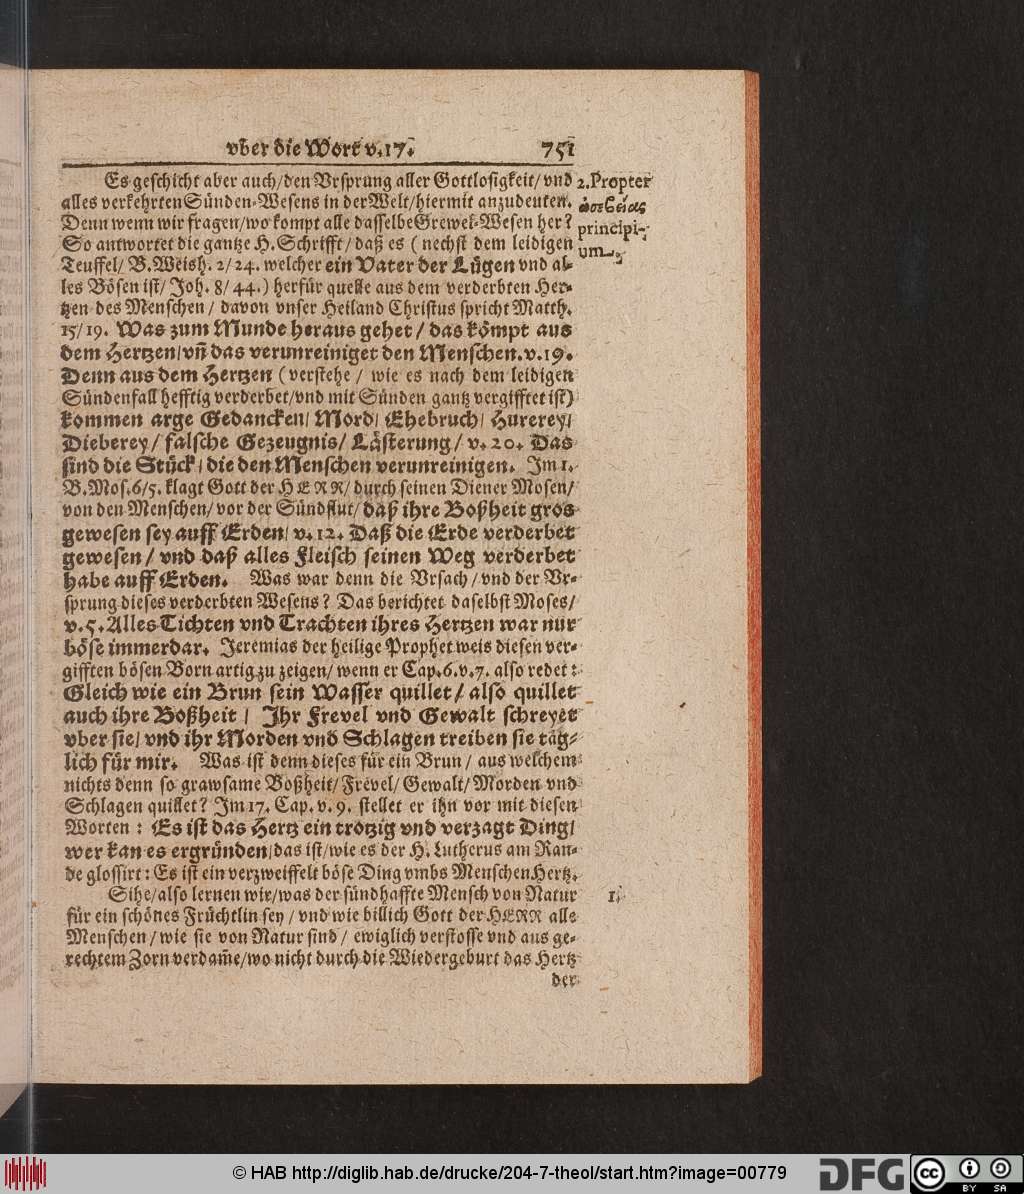 vber die Wort v.17. 751
Es geschicht aber auch/den Vrsprung aller Gottlosigkeit/vnd
alles verkehrten Sünden-Wesens in der Welt/hiermit anzudeuten.
Denn wenn wir fragen/wo kompt alle dasselbe Grewel-Wesen her?
So antwortet die gantze H. Schrifft/ daß es ( nechst dem leidigen
Teuffel/ B. Weish. 2/24. welcher ein Vater der Lügen vnd al-
les Bösen ist/ Joh. 8/ 44.) herfür quelle aus dem verderbten Her-
tzen des Menschen/ davon vnser Heiland Christus spricht Matth.
15/19. Was zum Munde heraus gehet/ das kömpt aus
dem Hertzen/vñ das verunreiniget den Menschen.v.19.
Denn aus dem Hertzen (verstehe/ wie es nach dem leidigen
Sündenfall hefftig verderbet/vnd mit Sünden gantz vergifftet ist)
kommen arge Gedancken/ Mord/ Ehebruch/ Hurerey/
Dieberey/ falsche Gezeugnis/ Lästerung/ v. 20. Das
sind die Stück/ die den Menschen verunreinigen. Im 1.
B. Mos. 6/5. klagt Gott der HERR/ durch seinen Diener Mosen/
von den Menschen/ vor der Sündflut/ daß ihre Boßheit gros
gewesen sey auff Erden/ v. 12. Daß die Erde verderbet
gewesen/ vnd daß alles Fleisch seinen Weg verderbet
habe auff Erden. Was war denn die Vrsach/ vnd der Vr-
sprung dieses verderbten Wesens? Das berichtet daselbst Moses/
v. 5. Alles Tichten vnd Trachten ihres Hertzen war nur
böse immerdar. Jeremias der heilige Prophet weis diesen ver-
gifften bösen Born artig zu zeigen/ wenn er Cap. 6. v. 7. also redet:
Gleich wie ein Brun sein Wasser quillet/ also quillet
auch ihre Boßheit/ Ihr Frevel vnd Gewalt schreyet
vber sie/ vnd ihr Morden vnd Schlagen treiben sie täg-
lich für mir. Was ist denn dieses für ein Brun/ aus welchem
nichts denn so grawsame Boßheit/ Frevel/ Gewalt/ Morden vnd
Schlagen quillet? Im 17. Cap. v. 9. stellet er ihn vor mit diesen
Worten: Es ist das Hertz ein trotzig vnd verzagt Ding/
wer kan es ergründen/das ist/wie es der H. Lutherus am Ran-
de glossirt: Es ist ein verzweiffelt böse Ding vmbs Menschen Hertz.
Sihe/also lernen wir/was der sündhaffte Mensch von Natur
für ein schönes Früchtlin sey/ vnd wie billich Gott der HERR alle
Menschen/ wie sie von Natur sind/ ewiglich verstosse vnd aus ge-
rechtem Zorn verdam̃e/wo nicht durch die Wiedergeburt das Hertz
der
2. Propter
ἀσεβείας
principi-
um.
1.
© HAB http://diglib.hab.de/drucke/204-7-theol/start.htm?image=00779
DFG
cc
BY SA